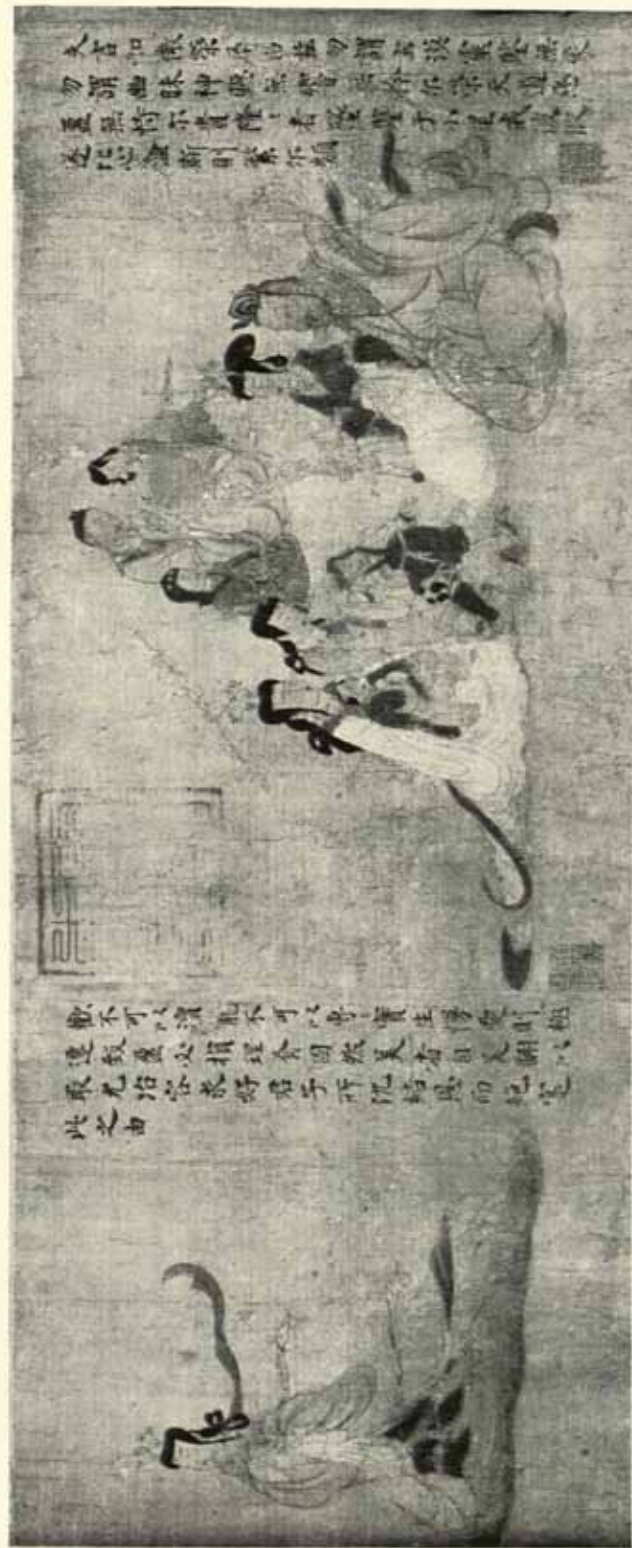 夫言如微榮辱由茲勿謂玄漠靈鑒無象
勿謂幽昧神聽無響無矜尒榮天道惡
盈無恃尒貴隆〻者墜鑒于小星戒彼攸
遂比心螽斯則繁尒類
歡不可以瀆寵不可以專實生慢愛則極
遷致盈必損理有固然美者自美翩以
取尤冶容求好君子所讎結恩而絕寔
此之由